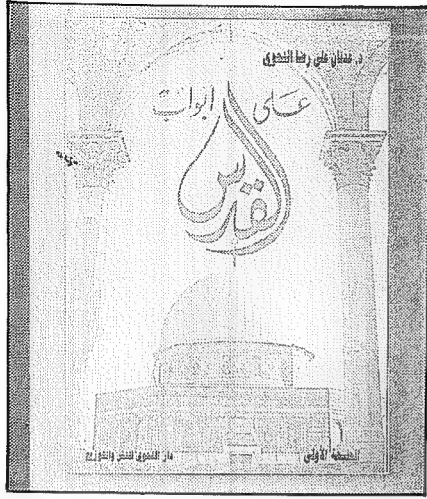 د. عدنان علي رضا النحوي
عَلى أبوابْ
القدس
الطبعة الأولى
دار النحوي للنشر والتوزيع